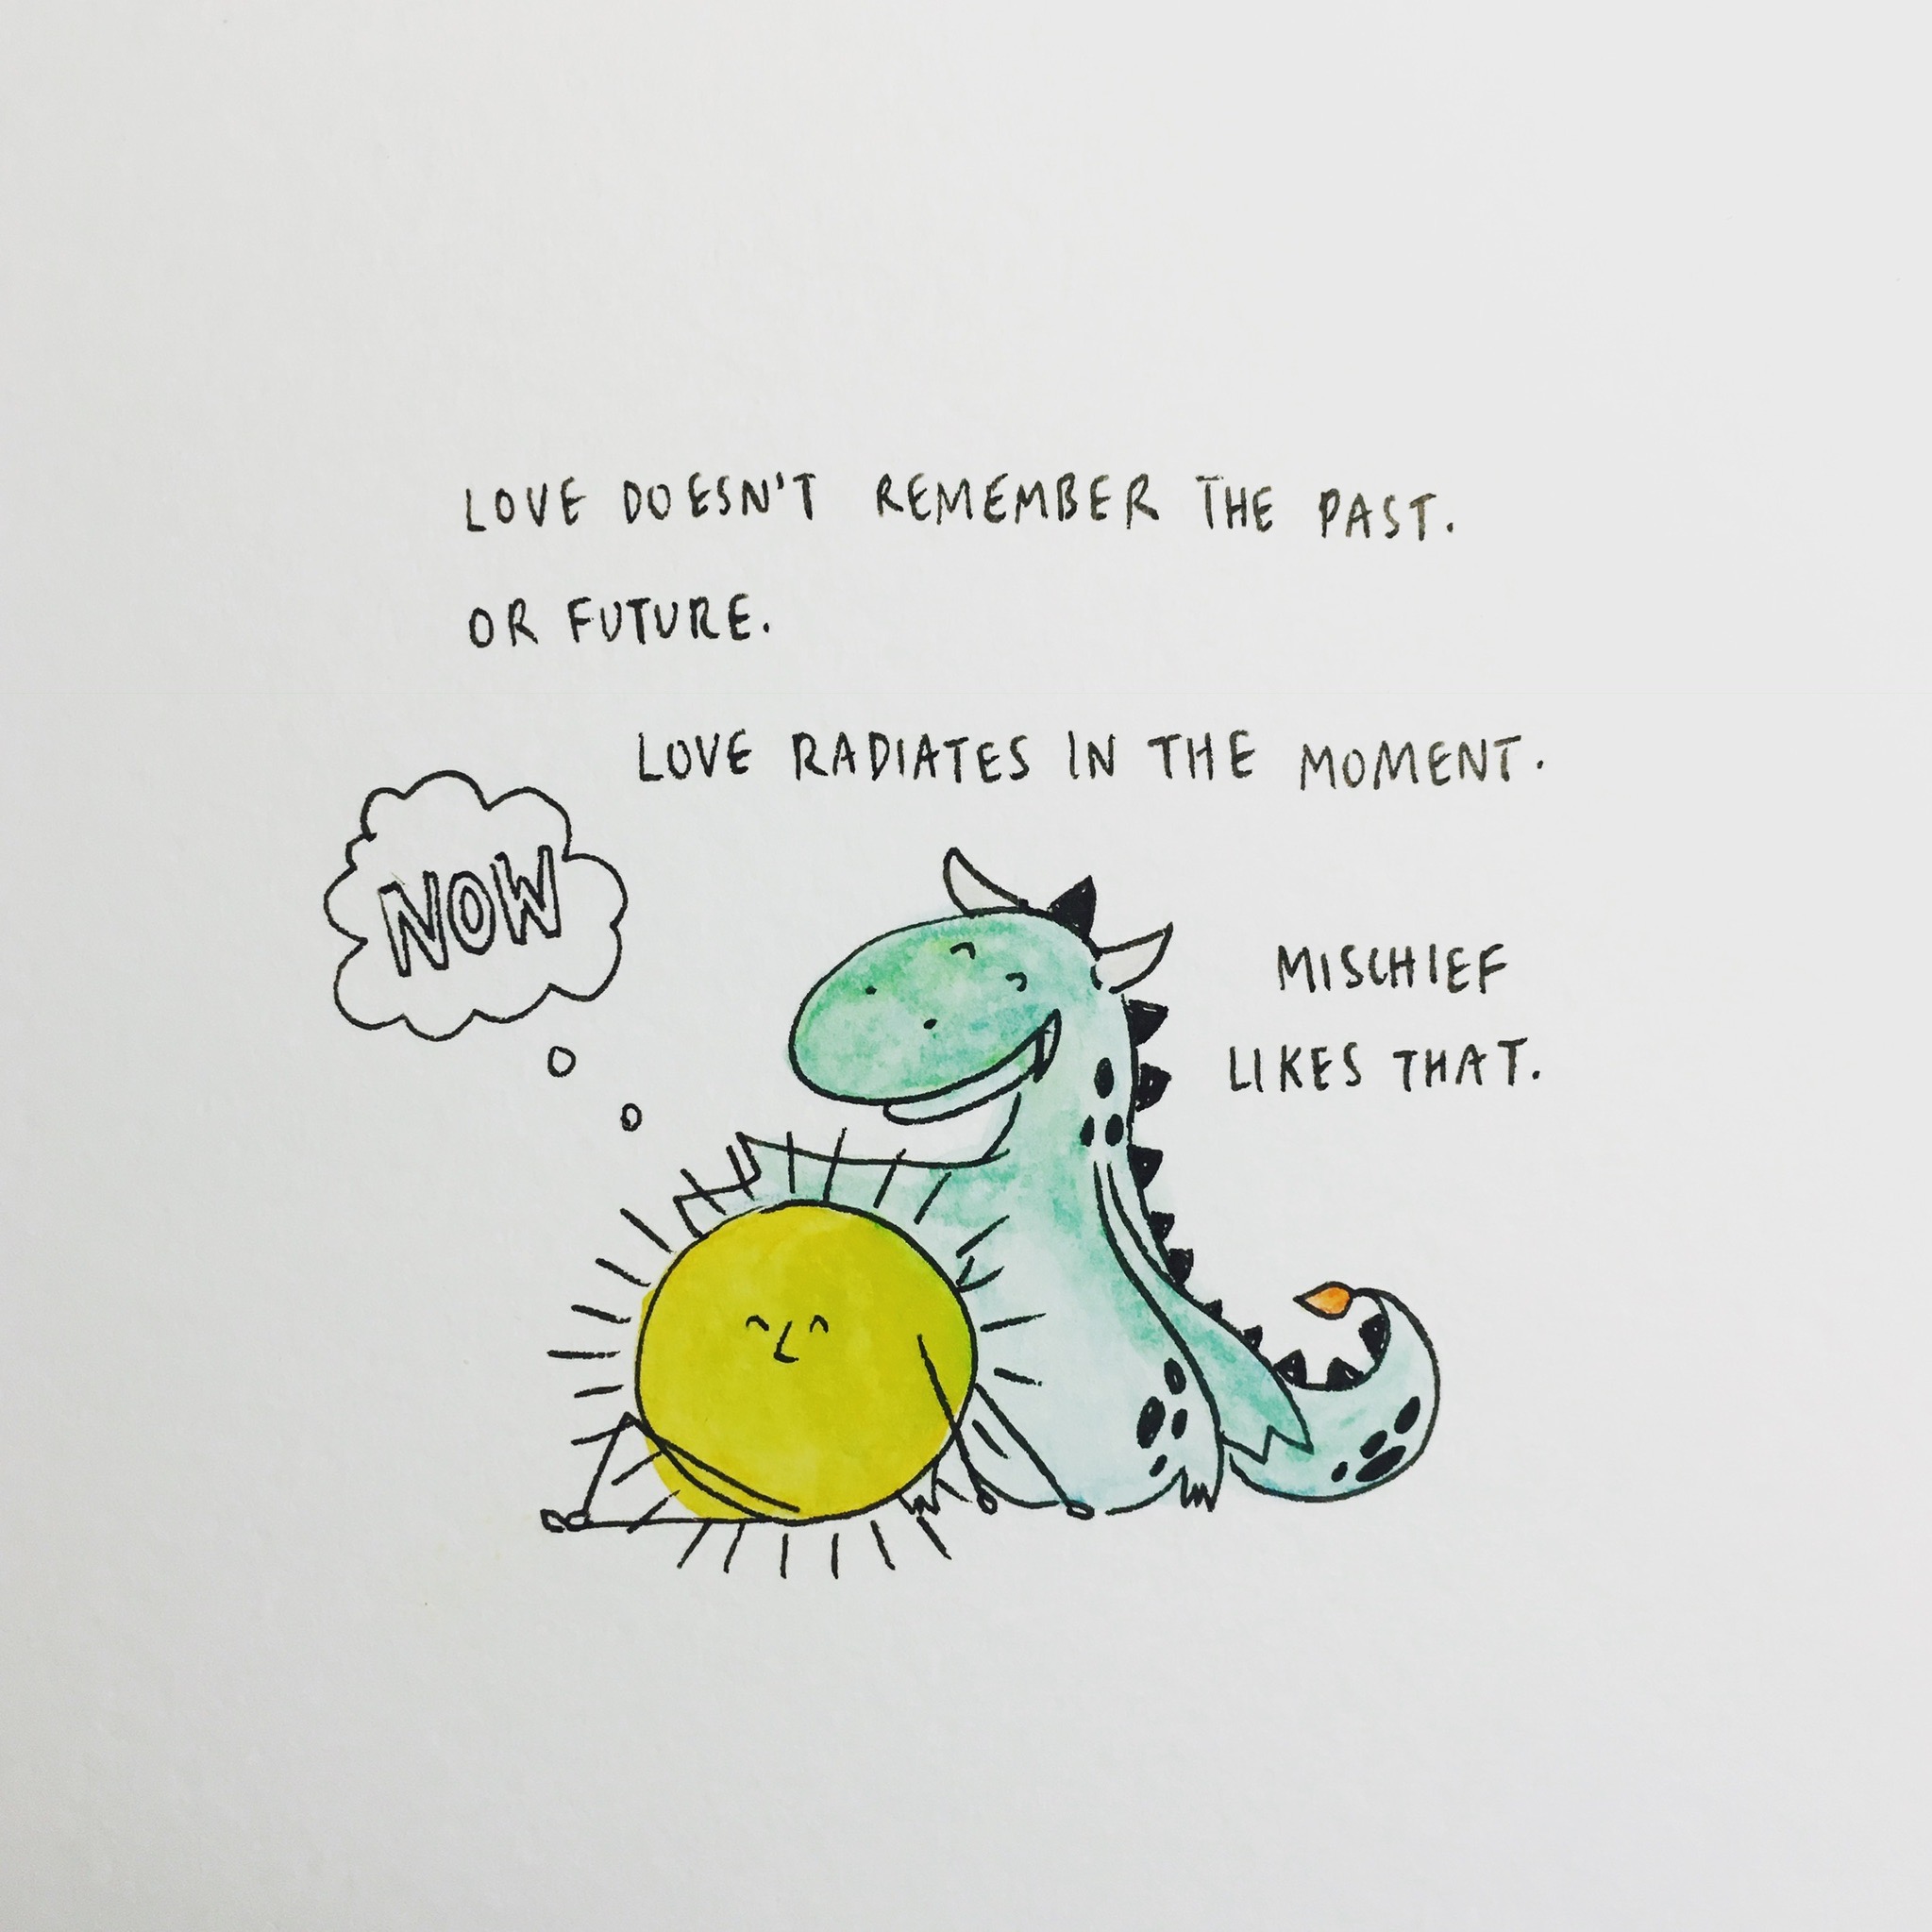 LOVE DOESN'T REMEMBER THE PAST.
OR FUTURE.
LOVE RADIATES IN THE MOMENT.
NOW
MISCHIEF
LIKES THAT.